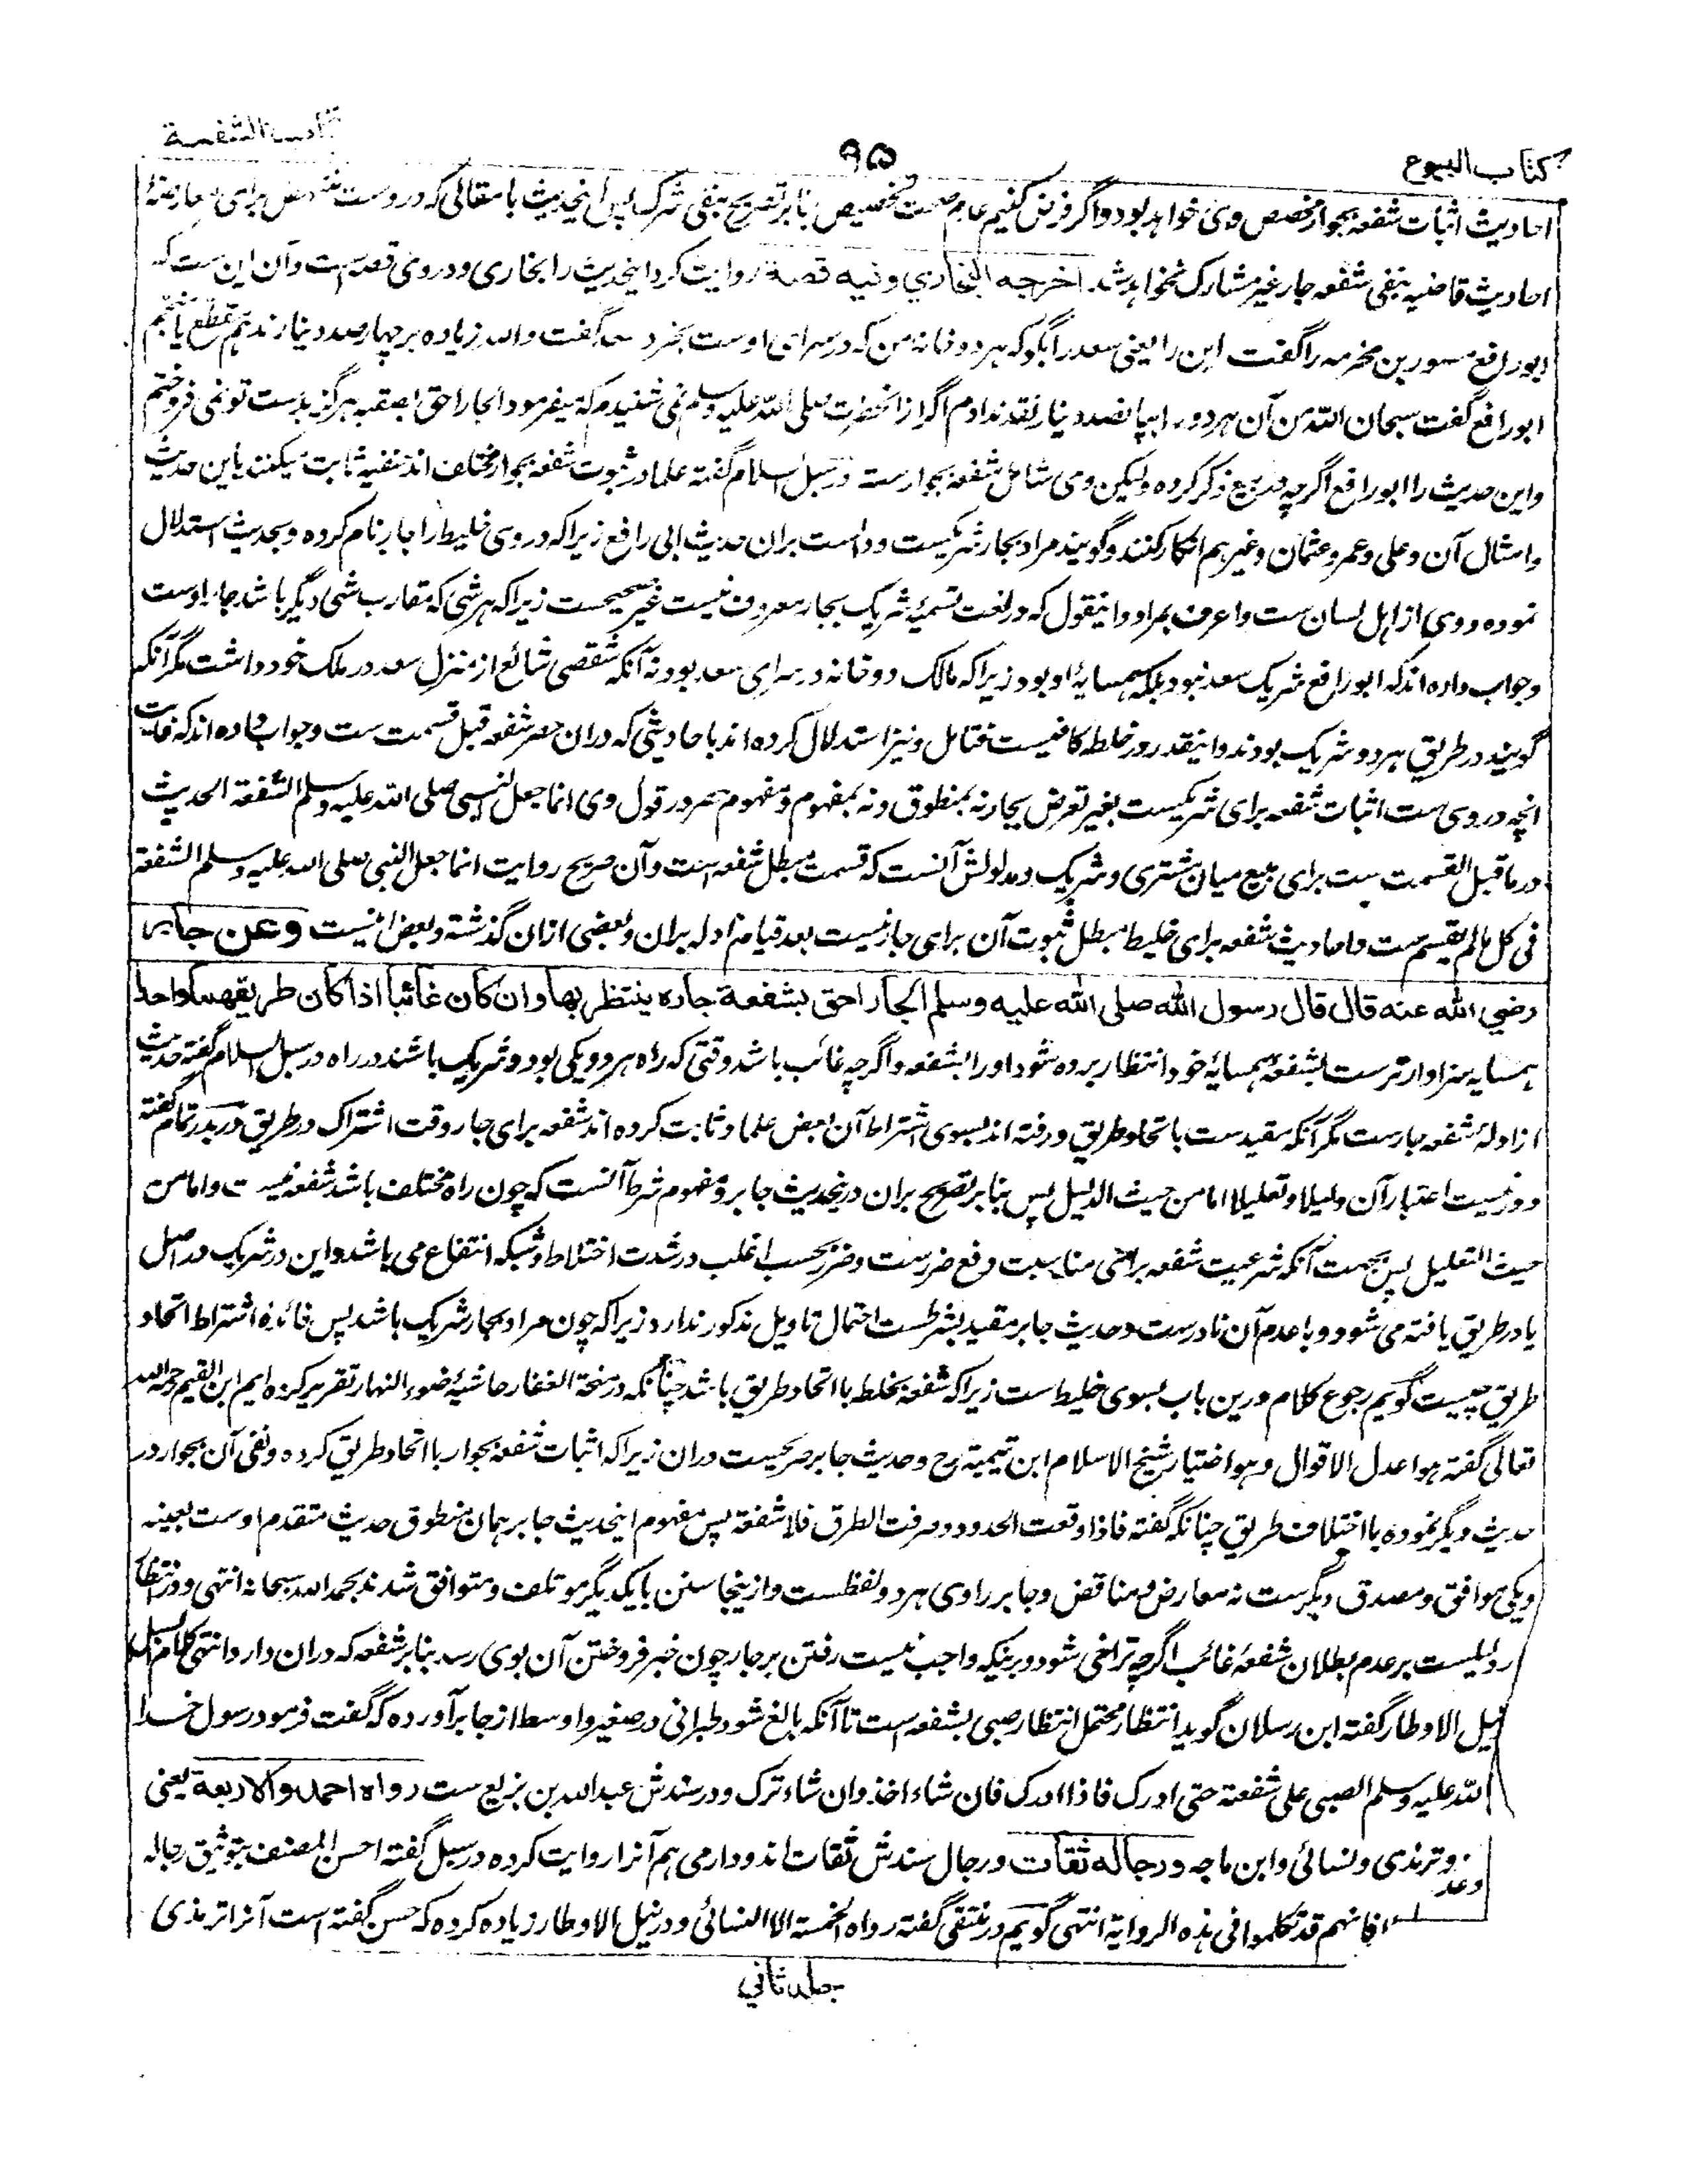 کتاب البیوع
۹۵
باب الشفعة
احادیث اثبات شفعه بجوار مخصص وی خواهد بود و اگر فرض کنیم عدم صحت تخصیص بنا بر تصریح بنفی شرک پس اینحدیث با مقالی که دروست برای معارضهٔ
احادیث قاضیه بنفی شفعه جار غیر مشارک نخواهد شد اخرجه البخاري وفيه قصة روایت کرد اینحدیث را بخاری و دروی قصه است و آن این ست که
ابو رافع مسور بن مخرمه را گفت این را یعنی سعد را بگو که هر دو خانه من که در سرای اوست بخرد سعد گفت والله زیاده بر چهارصد دینار ندهم مقطع یا منجم
ابو رافع گفت سبحان الله من آن هر دو را بپانصد دینار نقد ندادم اگر از آنحضرت صلی الله علیه وسلم نمی شنیدم که میفرمود الجار احق بصقبه هرگز بدست تو نمی فروختم
و این حدیث را ابو رافع اگرچه در بیع ذکر کرده ولیکن وی شامل شفعه بجوارست در سبل السلام گفته علما در ثبوت شفعه بجوار مختلف اند حنفیه ثابت میکنند باین حدیث
و امثال آن و علی و عمر و عثمان و غیرهم انکار کنند و گویند مراد بجار شریکست و دالست بران حدیث ابی رافع زیراکه دروی خلیط را جار نام کرده و بحدیث استدلال
نموده و وی از اهل لسان ست و اعرف بمراد و اینقول که در لغت تسمیهٔ شریک بجار معروف نیست غیر صحیحست زیراکه هر شی که مقارب شی دیگر باشد جار اوست
و جواب داده اند که ابو رافع شریک سعد نبود بلکه همسایهٔ او بود زیراکه مالک دو خانه در سرای سعد بود نه آنکه شقصی شائع از منزل سعد در ملک خود داشت مگر آنکه
گویند در طریق هر دو شریک بودند و اینقدر در خلطه کافیست فتامل و نیز استدلال کرده اند باحادیثی که دران حصر شفعه قبل قسمت ست و جواب داده اند که غایت
انچه دروی ست اثبات شفعه برای شریکست بغیر تعرض بجار نه بمنطوق و نه بمفهوم و مفهوم حصر در قول وی انما جعل النبی صلی الله علیه وسلم الشفعة الحدیث
در ما قبل القسمت ست برای بیع میان مشتری و شریک و مدلولش آنست که قسمت مبطل شفعه است و آن صریح روایت انما جعل النبی صلی الله علیه وسلم الشفعة
فی کل مالم یقسم ست و احادیث شفعه برای خلیط مبطل ثبوت آن برای جار نیست بعد قیام ادله بران و بعضی ازان گذشته و بعض اینست وعن جابر
رضي الله عنه قال قال رسول الله صلى الله عليه وسلم الجار احق بشفعة جاره ينتظر بها وان كان غائبا اذا كان طريقهما واحدا
همسایه سزاوارترست بشفعهٔ همسایهٔ خود انتظار برده شود او را بشفعه و اگرچه غائب باشد وقتی که راه هر دو یکی بود و شریک باشند در راه در سبل السلام گفته حدیث
از ادلهٔ شفعه جارست مگر آنکه مقیدست باتحاد طریق و رفته اند بسوی اشتراط آن بعض علما و ثابت کرده اند شفعه برای جار وقت اشتراک در طریق در بدر تمام گفته
دور نیست اعتبار آن دلیلا و تعلیلا اما من حیث الدلیل پس بنا بر تصریح بران درینحدیث جابر و مفهوم شرط آنست که چون راه مختلف باشد شفعه نیست و اما من
حیث التعلیل پس بجهت آنکه شرعیت شفعه برای مناسبت دفع ضررست و ضرر بحسب اغلب در شدت اختلاط و شبکه انتفاع می باشد و این در شریک در اصل
یا در طریق یافته می شود و با عدم آن نادرست و حدیث جابر مقید بشرطست احتمال تاویل مذکور ندارد زیراکه چون مراد بجار شریک باشد پس فائدهٔ اشتراط اتحاد
طریق چیست گویم رجوع کلام درین باب بسوی خلیط ست زیراکه شفعه بخلط با اتحاد طریق باشد چنانکه در منحة الغفار حاشیهٔ ضوء النهار تقریر کرده ایم ابن القیم رحمه الله
تعالی گفته هو اعدل الاقوال و هو اختیار شیخ الاسلام ابن تیمیة رح و حدیث جابر صریحست دران زیراکه اثبات شفعه بجوار با اتحاد طریق کرده و نفی آن بجوار در
حدیث دیگر نموده با اختلاف طریق چنانکه گفته فاذا وقعت الحدود و صرفت الطرق فلا شفعة پس مفهوم اینحدیث جابر همان منطوق حدیث متقدم اوست بعینه
و یکی موافق و مصدق دیگرست نه معارض و مناقض و جابر راوی هر دو لفظست و ازینجا سنن با یکدیگر موتلف و متوافق شدند بحمد الله سبحانه انتهی و در انتظار
دلیلیست بر عدم بطلان شفعهٔ غائب اگرچه تراخی شود و برینکه واجب نیست رفتن بر جار چون خبر فروختن آن بوی رسد بنا بر شفعه که دران دارد انتهی کلام السبل
نیل الاوطار گفته ابن رسلان گوید انتظار محتمل انتظار صبی بشفعه است تا آنکه بالغ شود طبرانی در صغیر و اوسط از جابر آورده که گفت فرمود رسول خدا
الله علیه وسلم الصبی علی شفعته حتی ادرک فاذا ادرک فان شاء اخذ وان شاء ترک و در سندش عبد الله بن بزیع ست رواه احمد والاربعة یعنی
و ترمذی و نسائی و ابن ماجه ورجاله ثقات و رجال سندش ثقات اند و دارمی هم آنرا روایت کرده در سبل گفته احسن المصنف بتوثیق رجاله
وعد
فانهم قد تکلموا فی هذه الروایة انتهی گویم در منتقی گفته رواه الخمسة الا النسائی و در نیل الاوطار زیاده کرده که حسن گفته است آنرا ترمذی
جلد ثاني